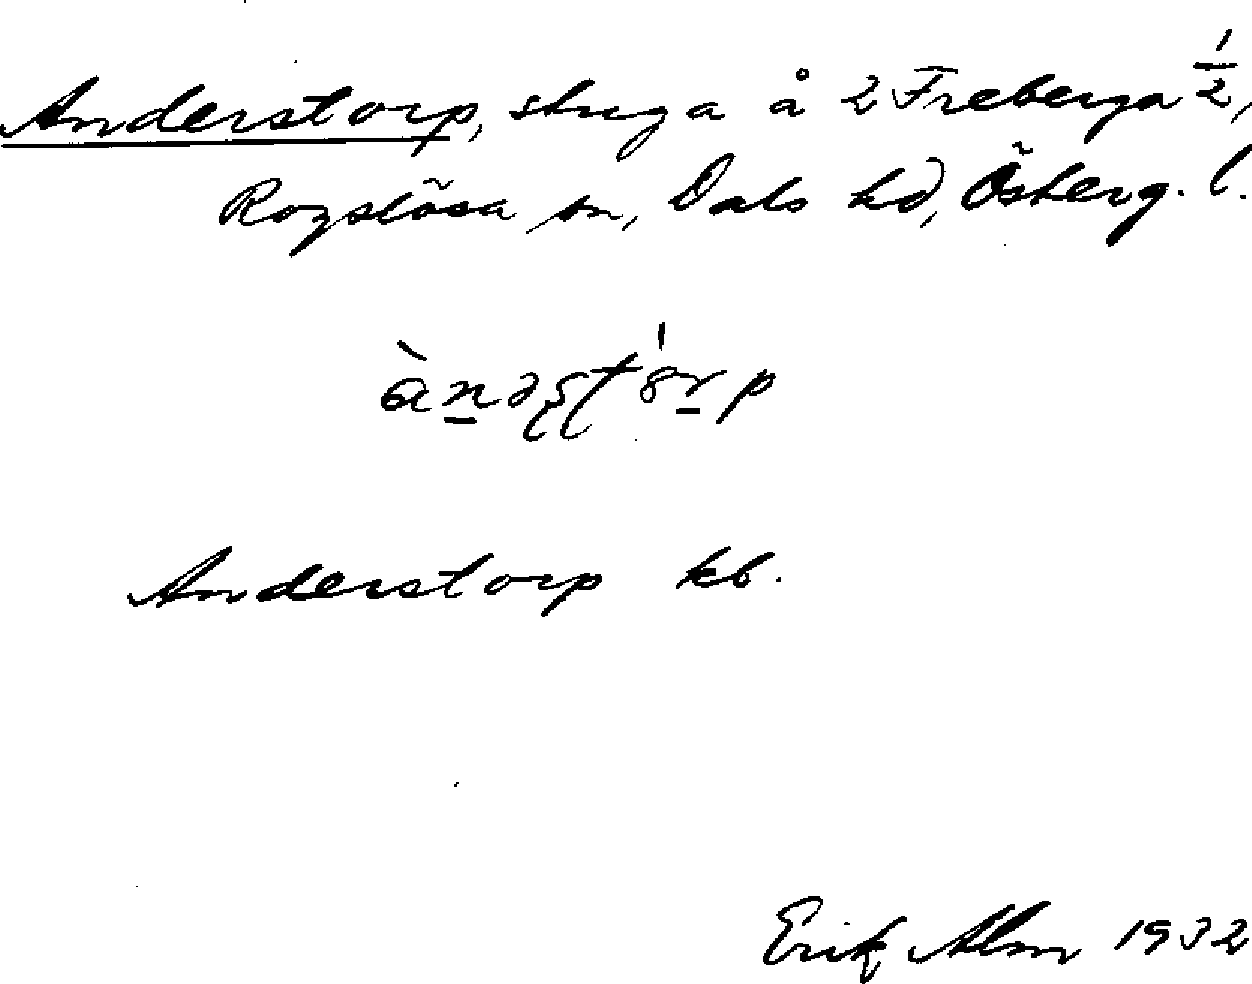 Anderstorp, stuga å 2 Freberga 1/2,
Rogslösa sn, Dals hd, Österg. l.
Anderstorp kb.
Erik Alm 1932